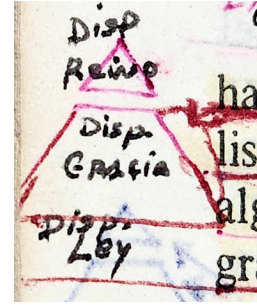 Disp
Reino
Disp.
GRACIA
Disp.
Ley
ha
lis
alg
gra